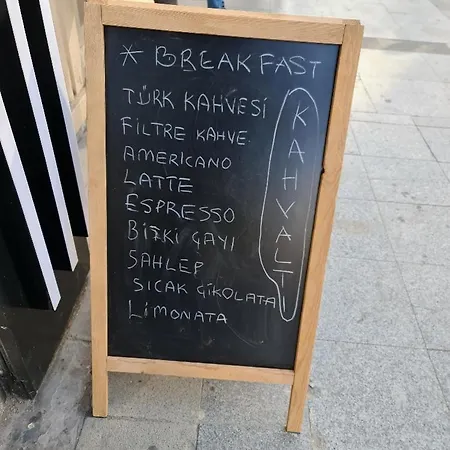 * BREAKFAST
TÜRK KAHVESİ
FILTRE KAHVE
AMERICANO
LATTE
ESPRESSO
BİTKİ ÇAYI
SAHLEP
SICAK ÇİKOLATA
LİMONATA
KAHVALTI